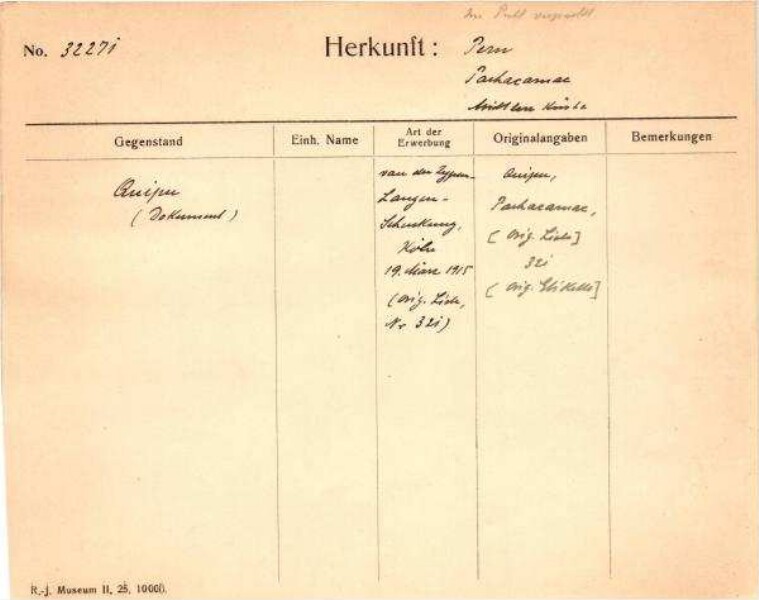 No. 3227i
Herkunft: Peru
Pachacamac
Mittlere Küste
Gegenstand
Einh. Name
Art der Erwerbung
Originalangaben
Bemerkungen
Quipu
(Dokument)
van der Zypen-
Langen-
Schenkung,
Köln
19. März 1915
(Orig. Liste,
Nr 32i)
Quipu,
Pachacamac,
[Orig. Liste]
32i
[Orig. Etikette]
R.-J. Museum II, 25, 10000.